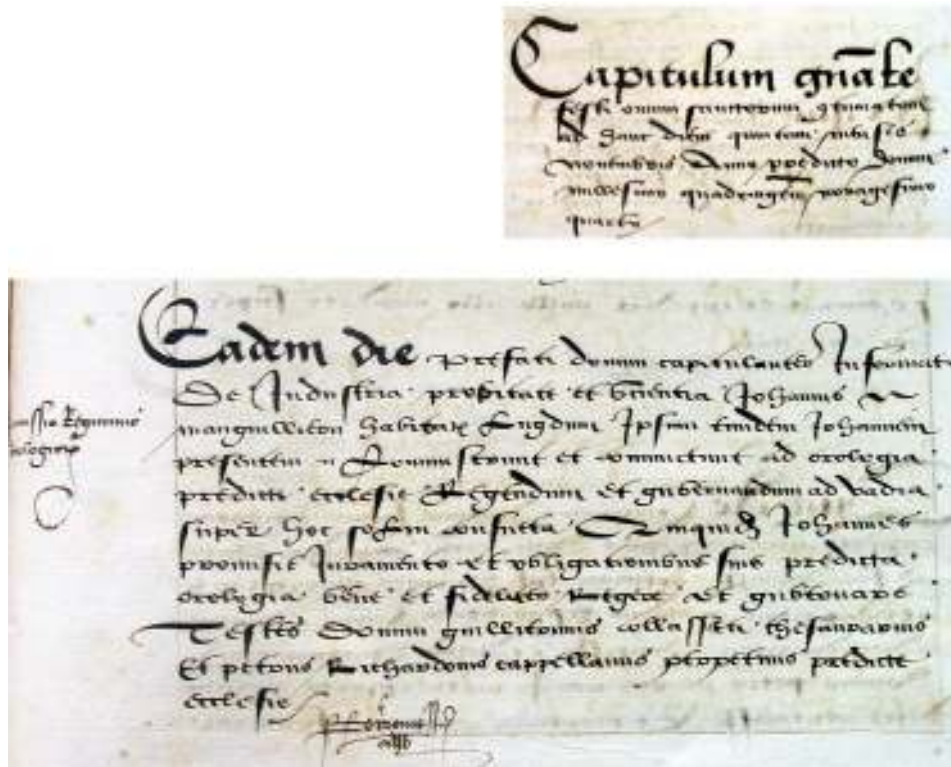 Capitulum gnãle
festi omnium sanctorum
Ad hanc diem
novembris Anno predicto domini
millesimo quadringen nonagesimo
quarto
Eadem die prefati domini capitulantes Informati
De Industria probitate et Johannis
habitar Lugduni Ipsum eundem Johannem
presentem et ad orologia
predicte ecclesie Regendum et gubernandum ad vadia
super hoc solui consueta Johannes
promisit Juramento et obligationibus suis predicta
orologia bene et fideliter Regere et gubernare
Testes domini guillermus collasseti thesaurarius
Et petrus Richardonis cappellanus perpetuus predicte
ecclesie